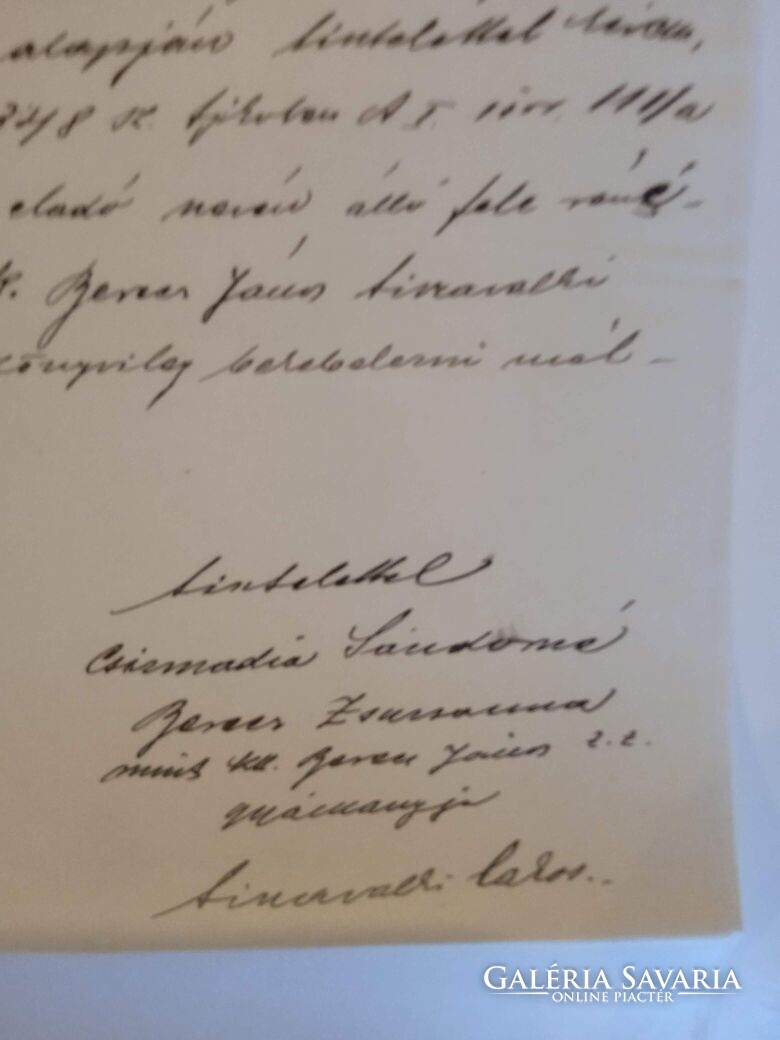 alapján tisztelettel kérem,
sz. tjkvben A I. sor. 1111/a
eladó nevén álló fele részé-
Berces János tiszavalki
könyvileg bekebelezni mél-
tisztelettel
Csizmadia Sándorné
Berecz Zsuzsanna
mint kk. Berecz János z. z.
gyámanyja
tiszavalki lakos.
GALÉRIA SAVARIA
ONLINE PIACTÉR